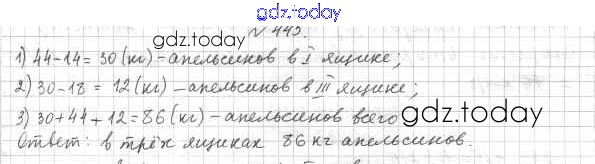 gdz.today
№ 445.
1) 44-14=30 (кг) - апельсинов в I ящике;
2) 30-18=12 (кг) - апельсинов в III ящике;
3) 30+44+12=86 (кг) - апельсинов всего
Ответ: в трёх ящиках 86 кг апельсинов.
gdz.today
gdz.today